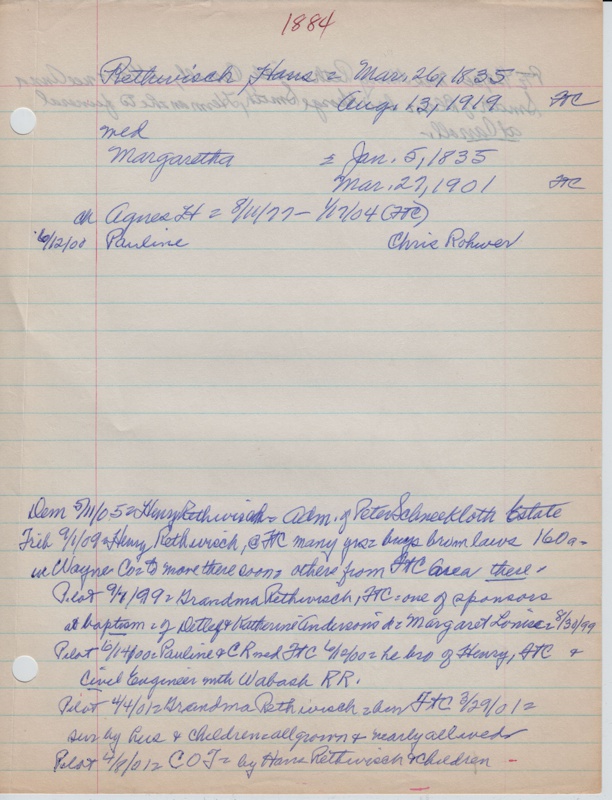 1884
Rethwisch, Hans = Mar. 26, 1835 -
Aug. 13, 1919 FtC
med
Margaretha = Jan. 5, 1835
Mar. 27, 1901 FtC
ch Agnes H = 8/10/77 - 1/17/04 (FtC)
6/12/00 Pauline Chris Rohwer
Dem 5/11/05 = Henry Rethwisch = Adm. of Peter Schneekloth Estate
Trib 9/1/09 = Henry Rethwisch, @ FtC many yrs = buys broinlaws 160a -
in Wayne Co = to move there soon = others from FtC area there.
Pilot 9/9/99 = Grandma Rethwisch, FtC = one of sponsors
at baptism = of Detlef & Katherine Anderson's d = Margaret Louise = 8/30/99
Pilot 6/14/00 = Pauline & CR med FtC 6/12/00 = he bro of Henry, FtC &
Civil Engineer with Wabash RR.
Pilot 4/4/01 = Grandma Rethwisch = bur FtC 3/29/01 =
sur by hus & children all grown & nearly all weds
Pilot 4/8/01 = COT = by Hans Rethwisch & children -